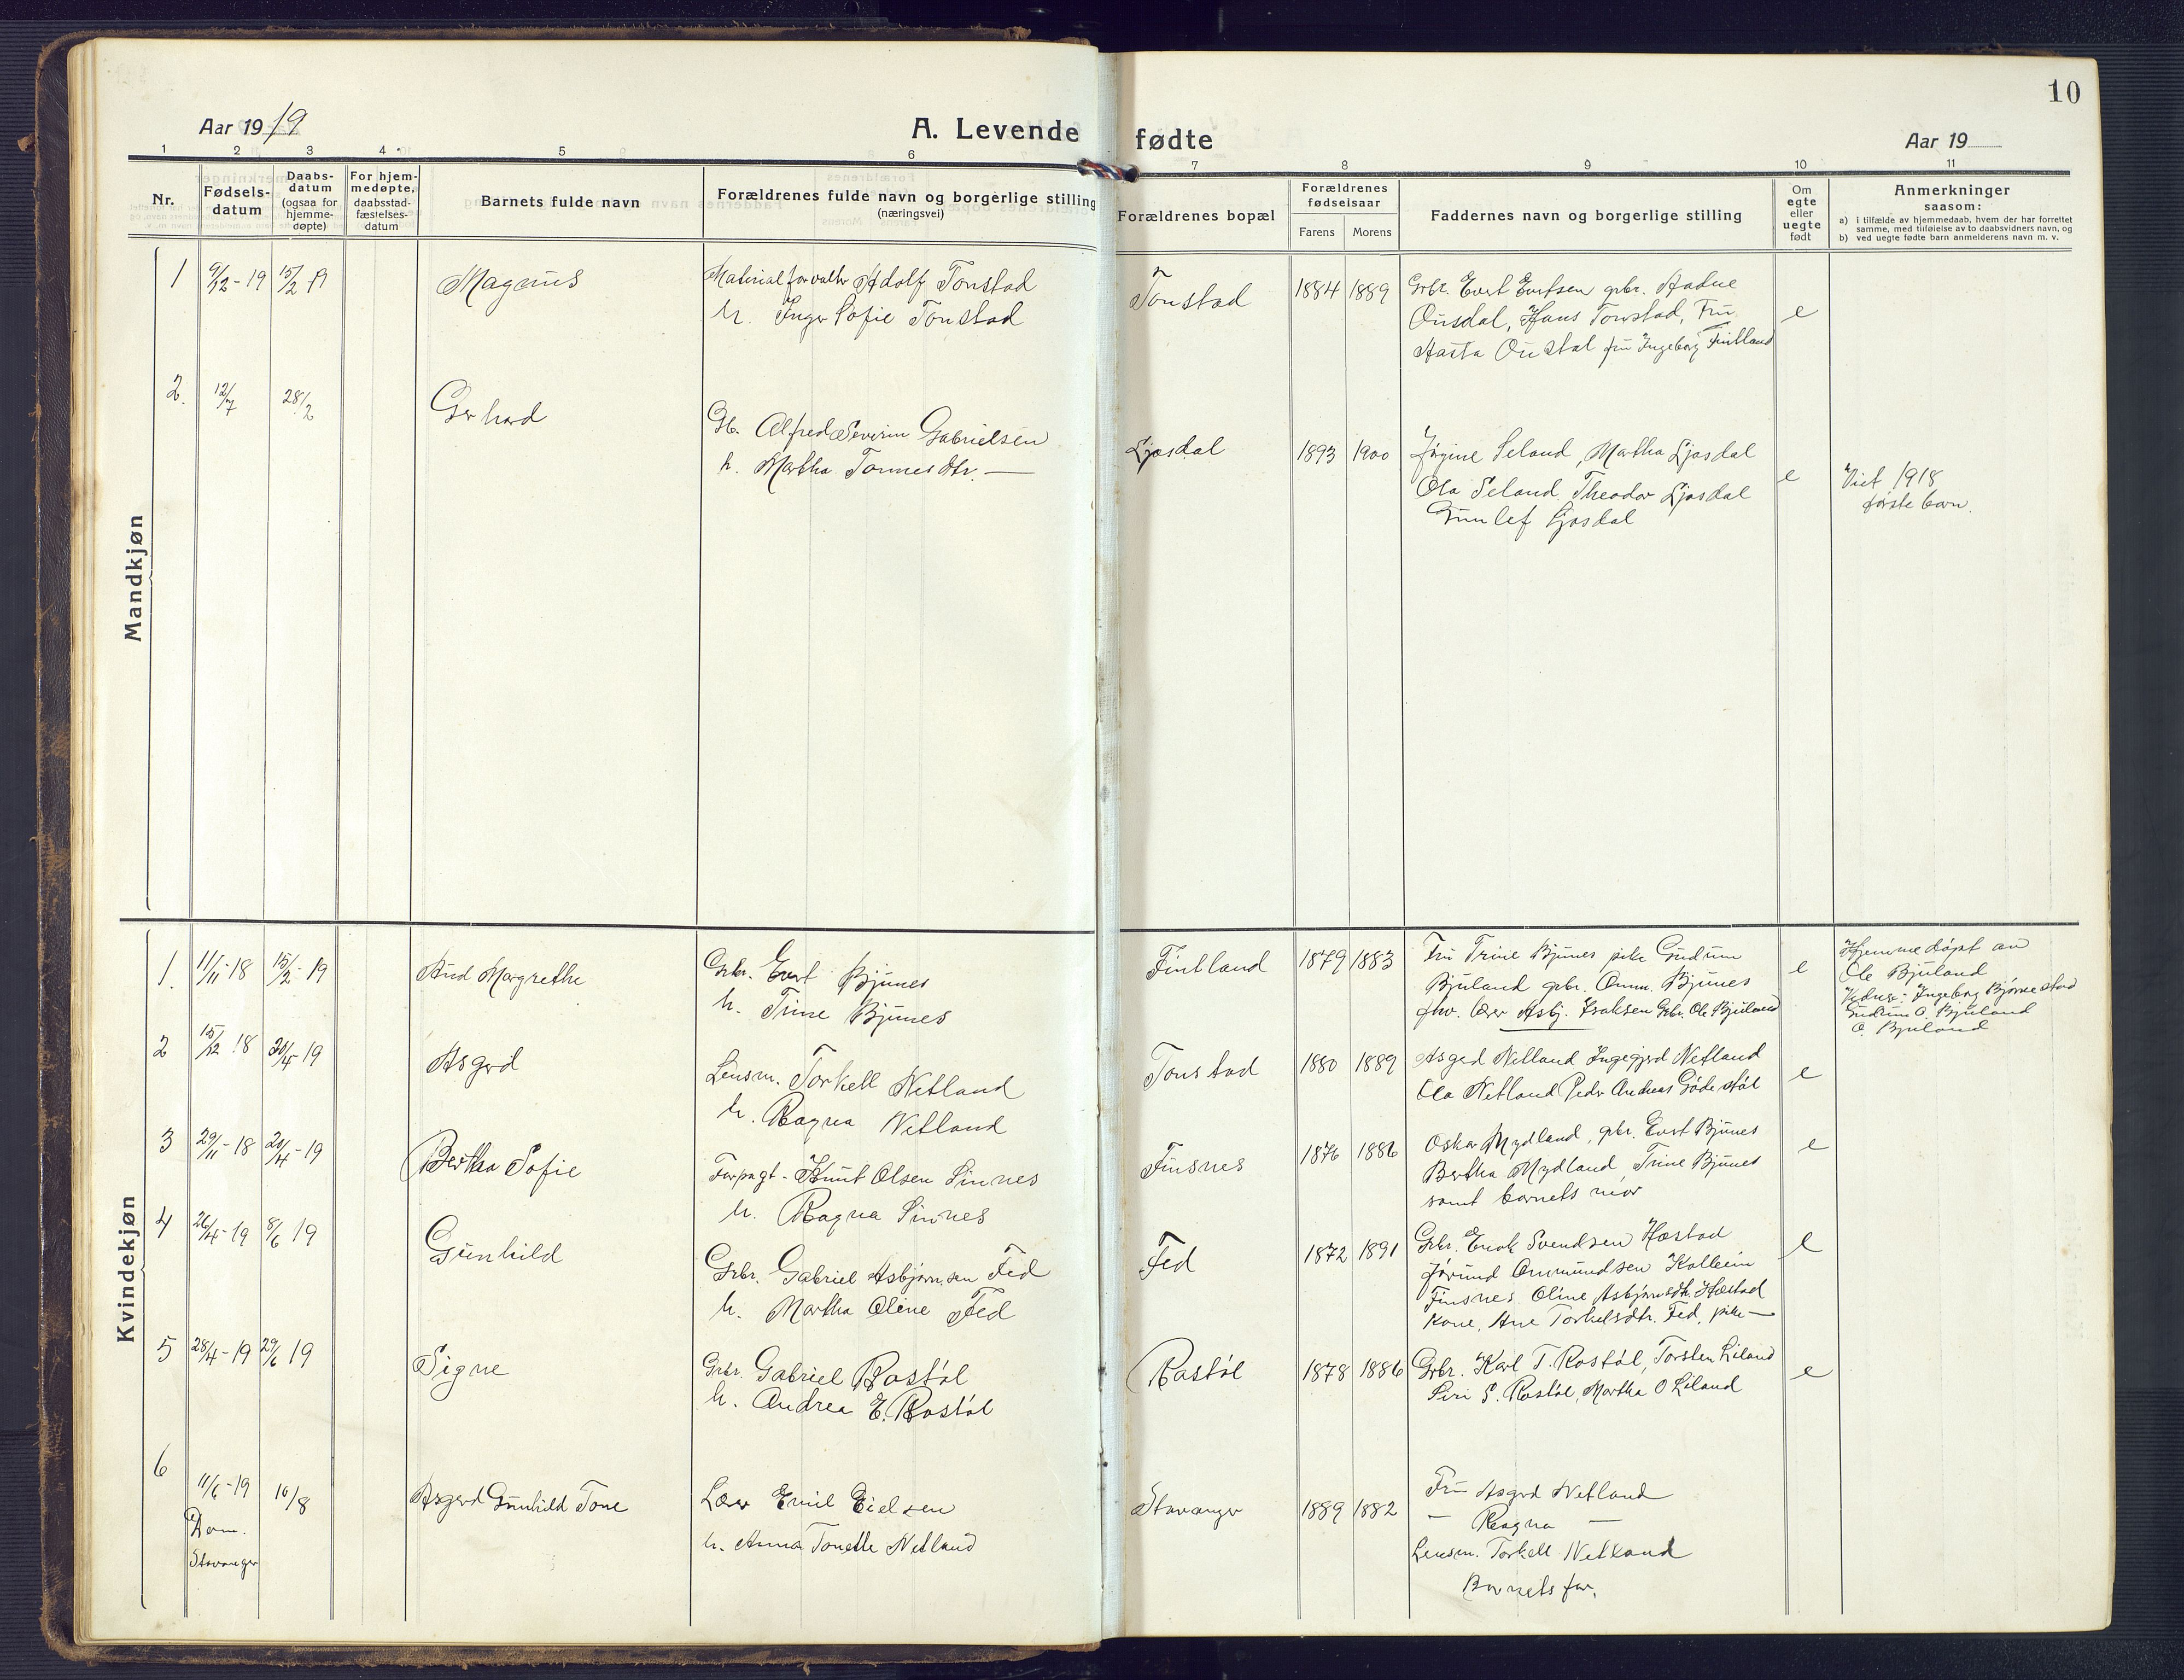 10
Aar 1919
A. Levende fødte
Aar 19
1 2 3 4 5 6 7 8 9 10 11
Nr.
Fødsels-
datum
Daabs-
datum
(ogsaa for
hjemme-
døpte)
For hjem-
medøpte,
daabsstad-
fæstelses-
datum
Barnets fulde navn
Forældrenes fulde navn og borgerlige stilling
(næringsvei)
Forældrenes bopæl
Forældrenes
fødselsaar
Farens Morens
Faddernes navn og borgerlige stilling
Om
egte
eller
uegte
født
Anmerkninger
saasom:
a) i tilfælde av hjemmedaab, hvem der har forrettet
samme, med tilføielse av to daabsvidners navn, og
b) ved uegte fødte barn anmelderens navn m. v.
Mandkjøn
1 9/12-19 15/2 19 Magnus
Materialforvalter Adolf Tonstad
h. Inger Sofie Tonstad
Tonstad 1884 1889
Grbr. Evert Evertsen grbr. Aadne
Ousdal, Hans Tonstad, Fru
Aasta Ousdal fru Ingeborg Fintland
e
2. 12/7 28/2 Gerhard
Gb. Alfred Severin Gabrielsen
h. Martha Tonnesdtr. —
Ljosdal 1893 1900
Jørgine Seland, Martha Ljosdal
Ola Seland Theodor Ljosdal
Gunlef Ljosdal
e
Viet 1918
første barn.
Kvindekjøn
1. 11/11-18 15/2-19 Aud Margrethe
Grbr. Evert Bjunes
h. Trine Bjunes
Fintland 1879 1883
Fru Trine Bjunes pike Gudrun
Bjuland grbr. Anm. Bjunes
fhv. lærer Asbj. Isaksen Grbr. Ole Bjuland
e
Hjemmedøpt av
Ole Bjuland
Vidner: Ingeborg Bjørnestad
Gudrun O. Bjuland
O. Bjuland
2 15/12 18 20/4-19 Asgerd
Lensm. Torkell Netland
h. Ragna Netland
Tonstad 1880 1889
Asgerd Netland Ingegjerd Netland
Ola Netland Peder Andreas Godestøl
e
3 29/11-18 20/4-19 Bertha Sofie
Forpagt- Knut Olsen Sinnes
h. Ragna Sinnes
Finsnes 1876 1886
Oskar Mydland, grbr. Evert Bjunes
Bertha Mydland Trine Bjunes
samt barnets mor
e
4 26/4-19 8/6 19 Gunhild
Grbr. Gabriel Asbjørnsen Fed
h. Martha Oline Fed
Fed 1872 1891
Grbr. Enok Svendsen Hæstad
Jørund Ommundsen Kalleim
Finsnes Oline Asbjørnsdtr. Hæstad
Kone, Ane Torkelsdtr. Fed, pike —
e
5 28/4-19 29/6 19 Signe
Grbr. Gabriel Rostøl
h. Andrea E. Rostøl
Rostøl 1878 1886
Grbr. Karl T. Rostøl, Torsten Liland
Siri S. Rostøl, Martha O Liland
e
6 11/6-19 10/8 Asgerd Gunhild Tone
Dom.
Stavanger
Lærer Emil Eielsen
h. Anna Tonette Netland
Stavanger 1889 1882
Fru Asgerd Netland
— Ragna —
Lensm. Torkell Netland
Barnets far.